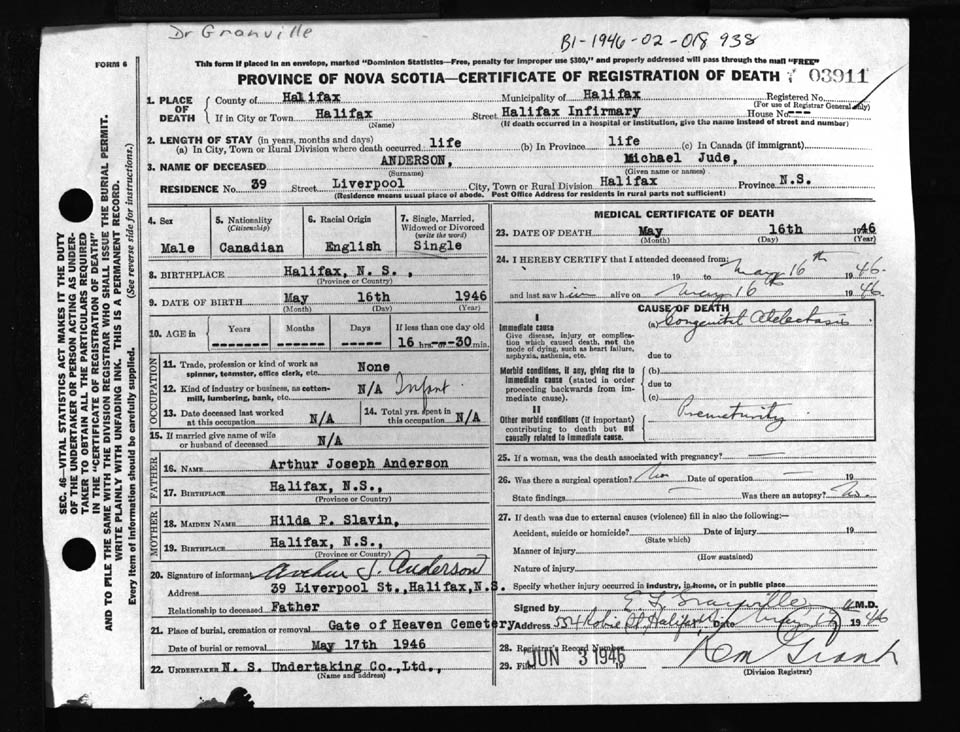 Dr Granville
B1-1946-02-018 938
FORM 6
This form if placed in an envelope, marked "Dominion Statistics—Free, penalty for improper use $300," and properly addressed will pass through the mail "FREE"
PROVINCE OF NOVA SCOTIA—CERTIFICATE OF REGISTRATION OF DEATH 03911
SEC. 46—VITAL STATISTICS ACT MAKES IT THE DUTY
OF THE UNDERTAKER OR PERSON ACTING AS UNDER-
TAKER TO OBTAIN ALL THE PARTICULARS REQUIRED
IN THE "CERTIFICATE OF REGISTRATION OF DEATH"
AND TO FILE THE SAME WITH THE DIVISION REGISTRAR WHO SHALL ISSUE THE BURIAL PERMIT.
WRITE PLAINLY WITH UNFADING INK. THIS IS A PERMANENT RECORD.
Every item of Information should be carefully supplied. (See reverse side for instructions.)
1. PLACE OF DEATH
County of Halifax Municipality of Halifax Registered No.
(For use of Registrar General only)
If in City or Town Halifax Street Halifax Infirmary House No. ---
(Name) (If death occurred in a hospital or institution, give the name instead of street and number)
2. LENGTH OF STAY (in years, months and days)
(a) In City, Town or Rural Division where death occurred life (b) In Province life (c) In Canada (if immigrant)
3. NAME OF DECEASED ANDERSON, Michael Jude,
(Surname) (Given name or names)
RESIDENCE No. 39 Street Liverpool City, Town or Rural Division Halifax Province N.S.
(Residence means usual place of abode. Post Office Address for residents in rural parts not sufficient)
4. Sex Male
5. Nationality (Citizenship) Canadian
6. Racial Origin English
7. Single, Married, Widowed or Divorced (write the word) Single
8. BIRTHPLACE Halifax, N. S. ,
(Province or Country)
9. DATE OF BIRTH May 16th 1946
(Month) (Day) (Year)
10. AGE in Years Months Days If less than one day old
16 hrs. or 30 min.
OCCUPATION
11. Trade, profession or kind of work as spinner, teamster, office clerk, etc. None
12. Kind of industry or business, as cotton-mill, lumbering, bank, etc. N/A Infant
13. Date deceased last worked at this occupation N/A
14. Total yrs. spent in this occupation N/A
15. If married give name of wife or husband of deceased N/A
FATHER
16. NAME Arthur Joseph Anderson
17. BIRTHPLACE Halifax, N.S.,
(Province or Country)
MOTHER
18. MAIDEN NAME Hilda P. Slavin,
19. BIRTHPLACE Halifax, N.S.,
(Province or Country)
20. Signature of informant Arthur J. Anderson
Address 39 Liverpool St., Halifax, N.S.
Relationship to deceased Father
21. Place of burial, cremation or removal Gate of Heaven Cemetery
Date of burial or removal May 17th 1946
22. UNDERTAKER N. S. Undertaking Co., Ltd.,
(Name and address)
MEDICAL CERTIFICATE OF DEATH
23. DATE OF DEATH May 16th 1946
(Month) (Day) (Year)
24. I HEREBY CERTIFY that I attended deceased from:
19 to May 16th 1946
and last saw him alive on May 16th 1946
CAUSE OF DEATH
I
Immediate cause
Give disease, injury or complication which caused death, not the mode of dying, such as heart failure, asphyxia, asthenia, etc.
(a) Congenital Atelectasis
due to
Morbid conditions, if any, giving rise to immediate cause (stated in order proceeding backwards from immediate cause).
(b)
due to
(c)
II
Other morbid conditions (if important) contributing to death but not causally related to immediate cause.
Prematurity
25. If a woman, was the death associated with pregnancy?
26. Was there a surgical operation? No Date of operation 19
State findings Was there an autopsy? No.
27. If death was due to external causes (violence) fill in also the following:-
Accident, suicide or homicide? Date of injury 19
(State which)
Manner of injury
(How sustained)
Nature of injury
Specify whether injury occurred in industry, in home, or in public place
Signed by E F Granville M.D.
Address 554 Robie St Halifax Date May 1946
28. Registrar's Record Number
29. Filed JUN 3 1946 19
(Division Registrar)